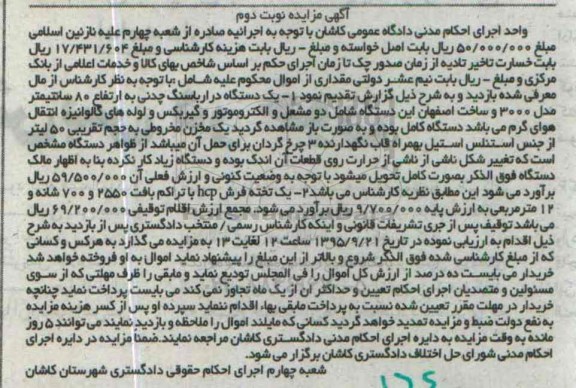 آگهی مزایده نوبت دوم
واحد اجرای احکام مدنی دادگاه عمومی کاشان با توجه به اجرائیه صادره از شعبه چهارم علیه نازنین اسلامی
مبلغ ۵۰/۰۰۰/۰۰۰ ریال بابت اصل خواسته و مبلغ - ریال بابت هزینه کارشناسی و مبلغ ۱۷/۴۳۱/۶۰۴ ریال
بابت خسارت تاخیر تادیه از زمان صدور چک تا زمان اجرای حکم بر اساس شاخص بهای کالا و خدمات اعلامی از بانک
مرکزی و مبلغ - ریال بابت نیم عشر دولتی مقداری از اموال محکوم علیه شامل :با توجه به نظر کارشناس از مال
معرفی شده بازدید و به شرح ذیل گزارش تقدیم نمود ۱- یک دستگاه دراریاسنگ چدنی به ارتفاع ۸۰ سانتیمتر
مدل ۳۰۰۰ و ساخت اصفهان این دستگاه شامل دو مشعل و الکتروموتور و گیربکس و لوله های گالوانیزه انتقال
هوای گرم می باشد دستگاه کامل بوده و به صورت باز مشاهده گردید یک مخزن مخروطی به حجم تقریبی ۵۰ لیتر
از جنس استنلس استیل بهمراه قاب نگهدارنده ۳ چرخ گردان برای حمل آن میباشد از ظواهر دستگاه مشخص
است که تغییر شکل ناشی از ناشی از حرارت روی قطعات آن اندک بوده و دستگاه زیاد کار نکرده بنا به اظهار مالک
دستگاه فوق الذکر بصورت کامل تحویل میشود با توجه به وضعیت کنونی و ارزش فعلی آن ۵۹/۵۰۰/۰۰۰ ریال
برآورد می شود این مطابق نظریه کارشناس می باشد۲- یک تخته فرش hcp با تراکم بافت ۲۵۵۰ و ۷۰۰ شانه و
۱۲ مترمربعی به ارزش پایه ۹/۷۰۰/۰۰۰ ریال برآورد می شود. مجمع ارزش اقلام توقیفی ۶۹/۲۰۰/۰۰۰ ریال
می باشد توقیف پس از جری تشریفات قانونی و اینکه کارشناس رسمی / منتخب دادگستری پس از بازدید به شرح
ذیل اقدام به ارزیابی نموده در تاریخ ۱۳۹۵/۹/۲۱ ساعت ۱۲ لغایت ۱۳ به مزایده می گذارد به هرکس و کسانی
که از مبلغ کارشناسی شده فوق الذکر شروع و بالاتر از این مبلغ را پیشنهاد نماید اموال به او فروخته خواهد شد
خریدار می بایست ده درصد از ارزش کل اموال را فی المجلس تودیع نماید و مابقی را ظرف مهلتی که از سوی
مسئولین و متصدیان اجرای احکام تعیین و حداکثر آن از یک ماه تجاوز نمی کند می بایست پرداخت نماید چنانچه
خریدار در مهلت مقرر تعیین شده نسبت به پرداخت مابقی بها، اقدام ننماید سپرده او پس از کسر هزینه مزایده
به نفع دولت ضبط و مزایده تمدید خواهد گردید کسانی که مایلند اموال را ملاحظه و بازدید نمایند می توانند ۵ روز
مانده به وقت مزایده به دایره اجرای احکام مدنی دادگستری کاشان مراجعه نمایند.ضمنا مزایده در دایره اجرای
احکام مدنی شورای حل اختلاف دادگستری کاشان برگزار می شود.
شعبه چهارم اجرای احکام حقوقی دادگستری شهرستان کاشان